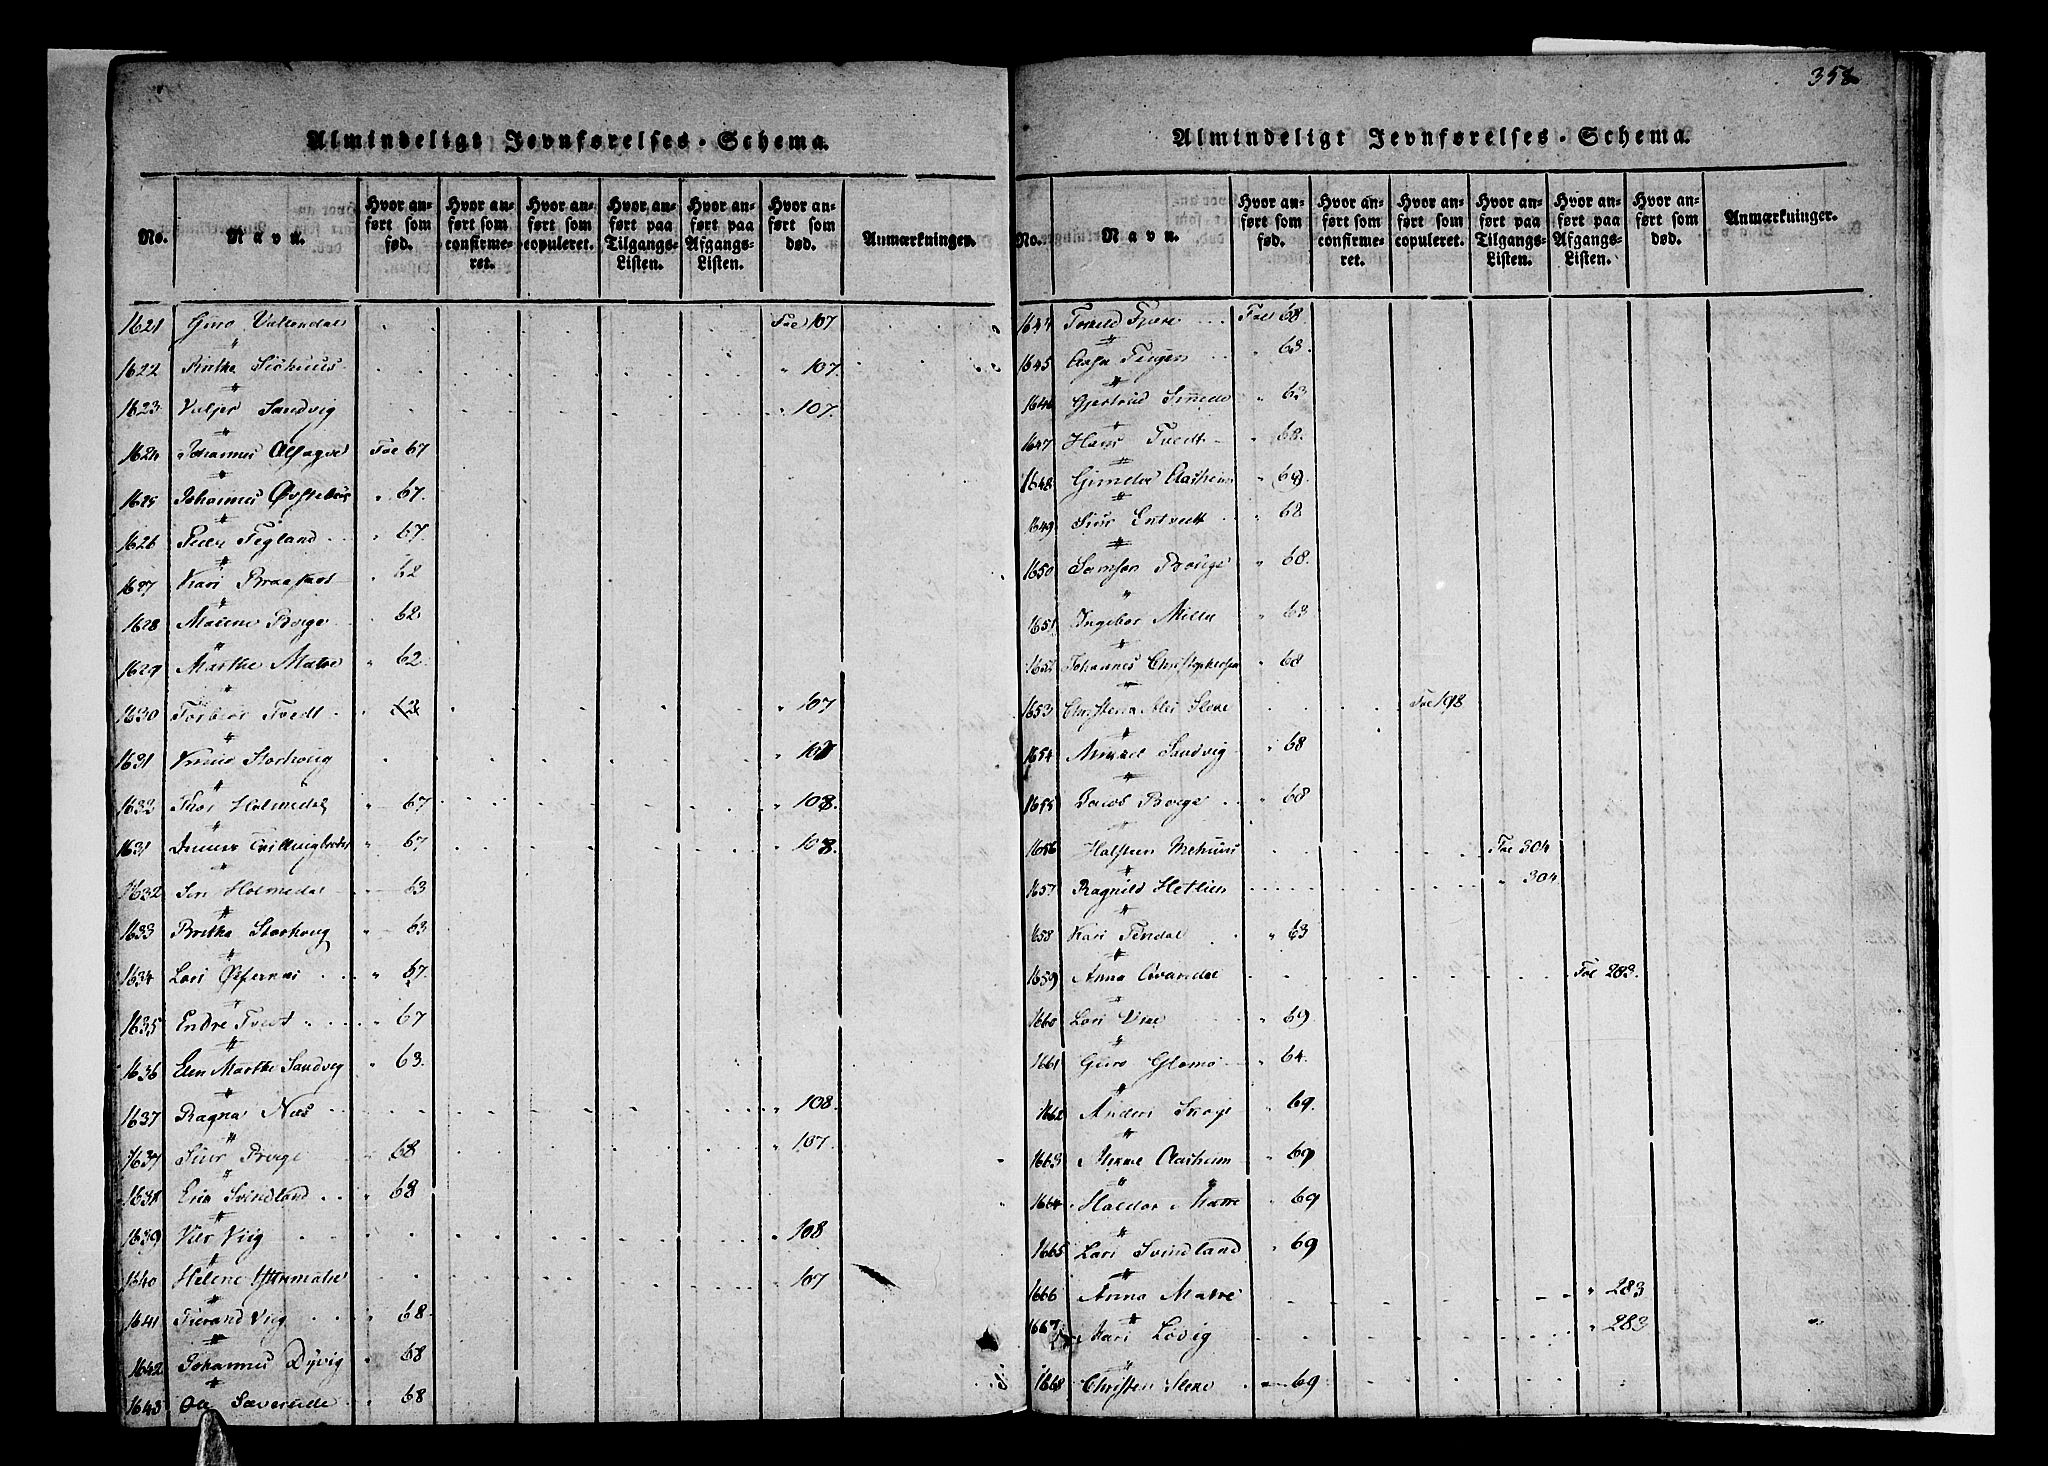 358
Almindeligt Jevnførelses-Schema.
No.
Navn.
Hvor anført som fød.
Hvor anført som confirmeret.
Hvor anført som copuleret.
Hvor anført paa Tilgangs-Listen.
Hvor anført paa Afgangs-Listen.
Hvor anført som død.
Anmærkninger.
1621 Guro Valendal Fol 107
1622 107.
1623 Sandvig " 107.
1624 Johannes Fol 67
1625 Johannes Øvstebøe " 67.
1626 Peder Tigland " 67.
1627 Kari " 62
1628 Malene Berge " 62
1629 Marthe Matre " 62
1630 Torbiør Tvedt " 62 " 107
1631 Storhoug " 107
1632 Thor Holmedal " 67 " 108.
1631 " 67 " 108.
1632 Siri Holmedal 63
1633 Brithe Storhoug " 63
1634 Lars Østernæs " 67.
1635 Endre Tvedt " 67
1636 Elen Marthe Sandvig " 63.
1637 Ragna Næs " 108.
1637 Siur Berge 68 " 107.
1638 Eric Svindland " 68
1639 Viig 108
1640 Helene Yttermatre 107
1641 Tierand Viig " 68.
1642 Johannes Dyvig " 68
1643 Saverude " 68
Almindeligt Jevnførelses-Schema.
No.
Navn.
Hvor anført som fød.
Hvor anført som confirmeret.
Hvor anført som copuleret.
Hvor anført paa Tilgangs-Listen.
Hvor anført paa Afgangs-Listen.
Hvor anført som død.
Anmærkninger.
1644 Torkild Fjære Fol 68.
1645 " 63.
1646 Gjertrud " 63
1647 Hans Tvedt " 68.
1648 Gunder Aasheim " 69
1649 Siur Entvedt " 68
1650 Samson Berge " 68.
1651 Ingebor Milla " 63
1652 Johannes Christophersen " 68
1653 Christen Fol 198
1654 Mikkel Sandvig " 68
1655 Jacob Berge " 68
1656 Halsteen Mehuus Fol 304
1657 Ragnild Hetlien " 304
1658 Kari Tendal " 63
1659 Anna Fol 283.
1660 Lars " 69
1661 Guro " 64.
1662 Anders " 69.
1663 Aasheim " 69
1664 Haldor Matre " 69
1665 Lars Svindland " 69
1666 Anna Matre " 283
1667 Kari Løvig " 283
1668 Christen 69